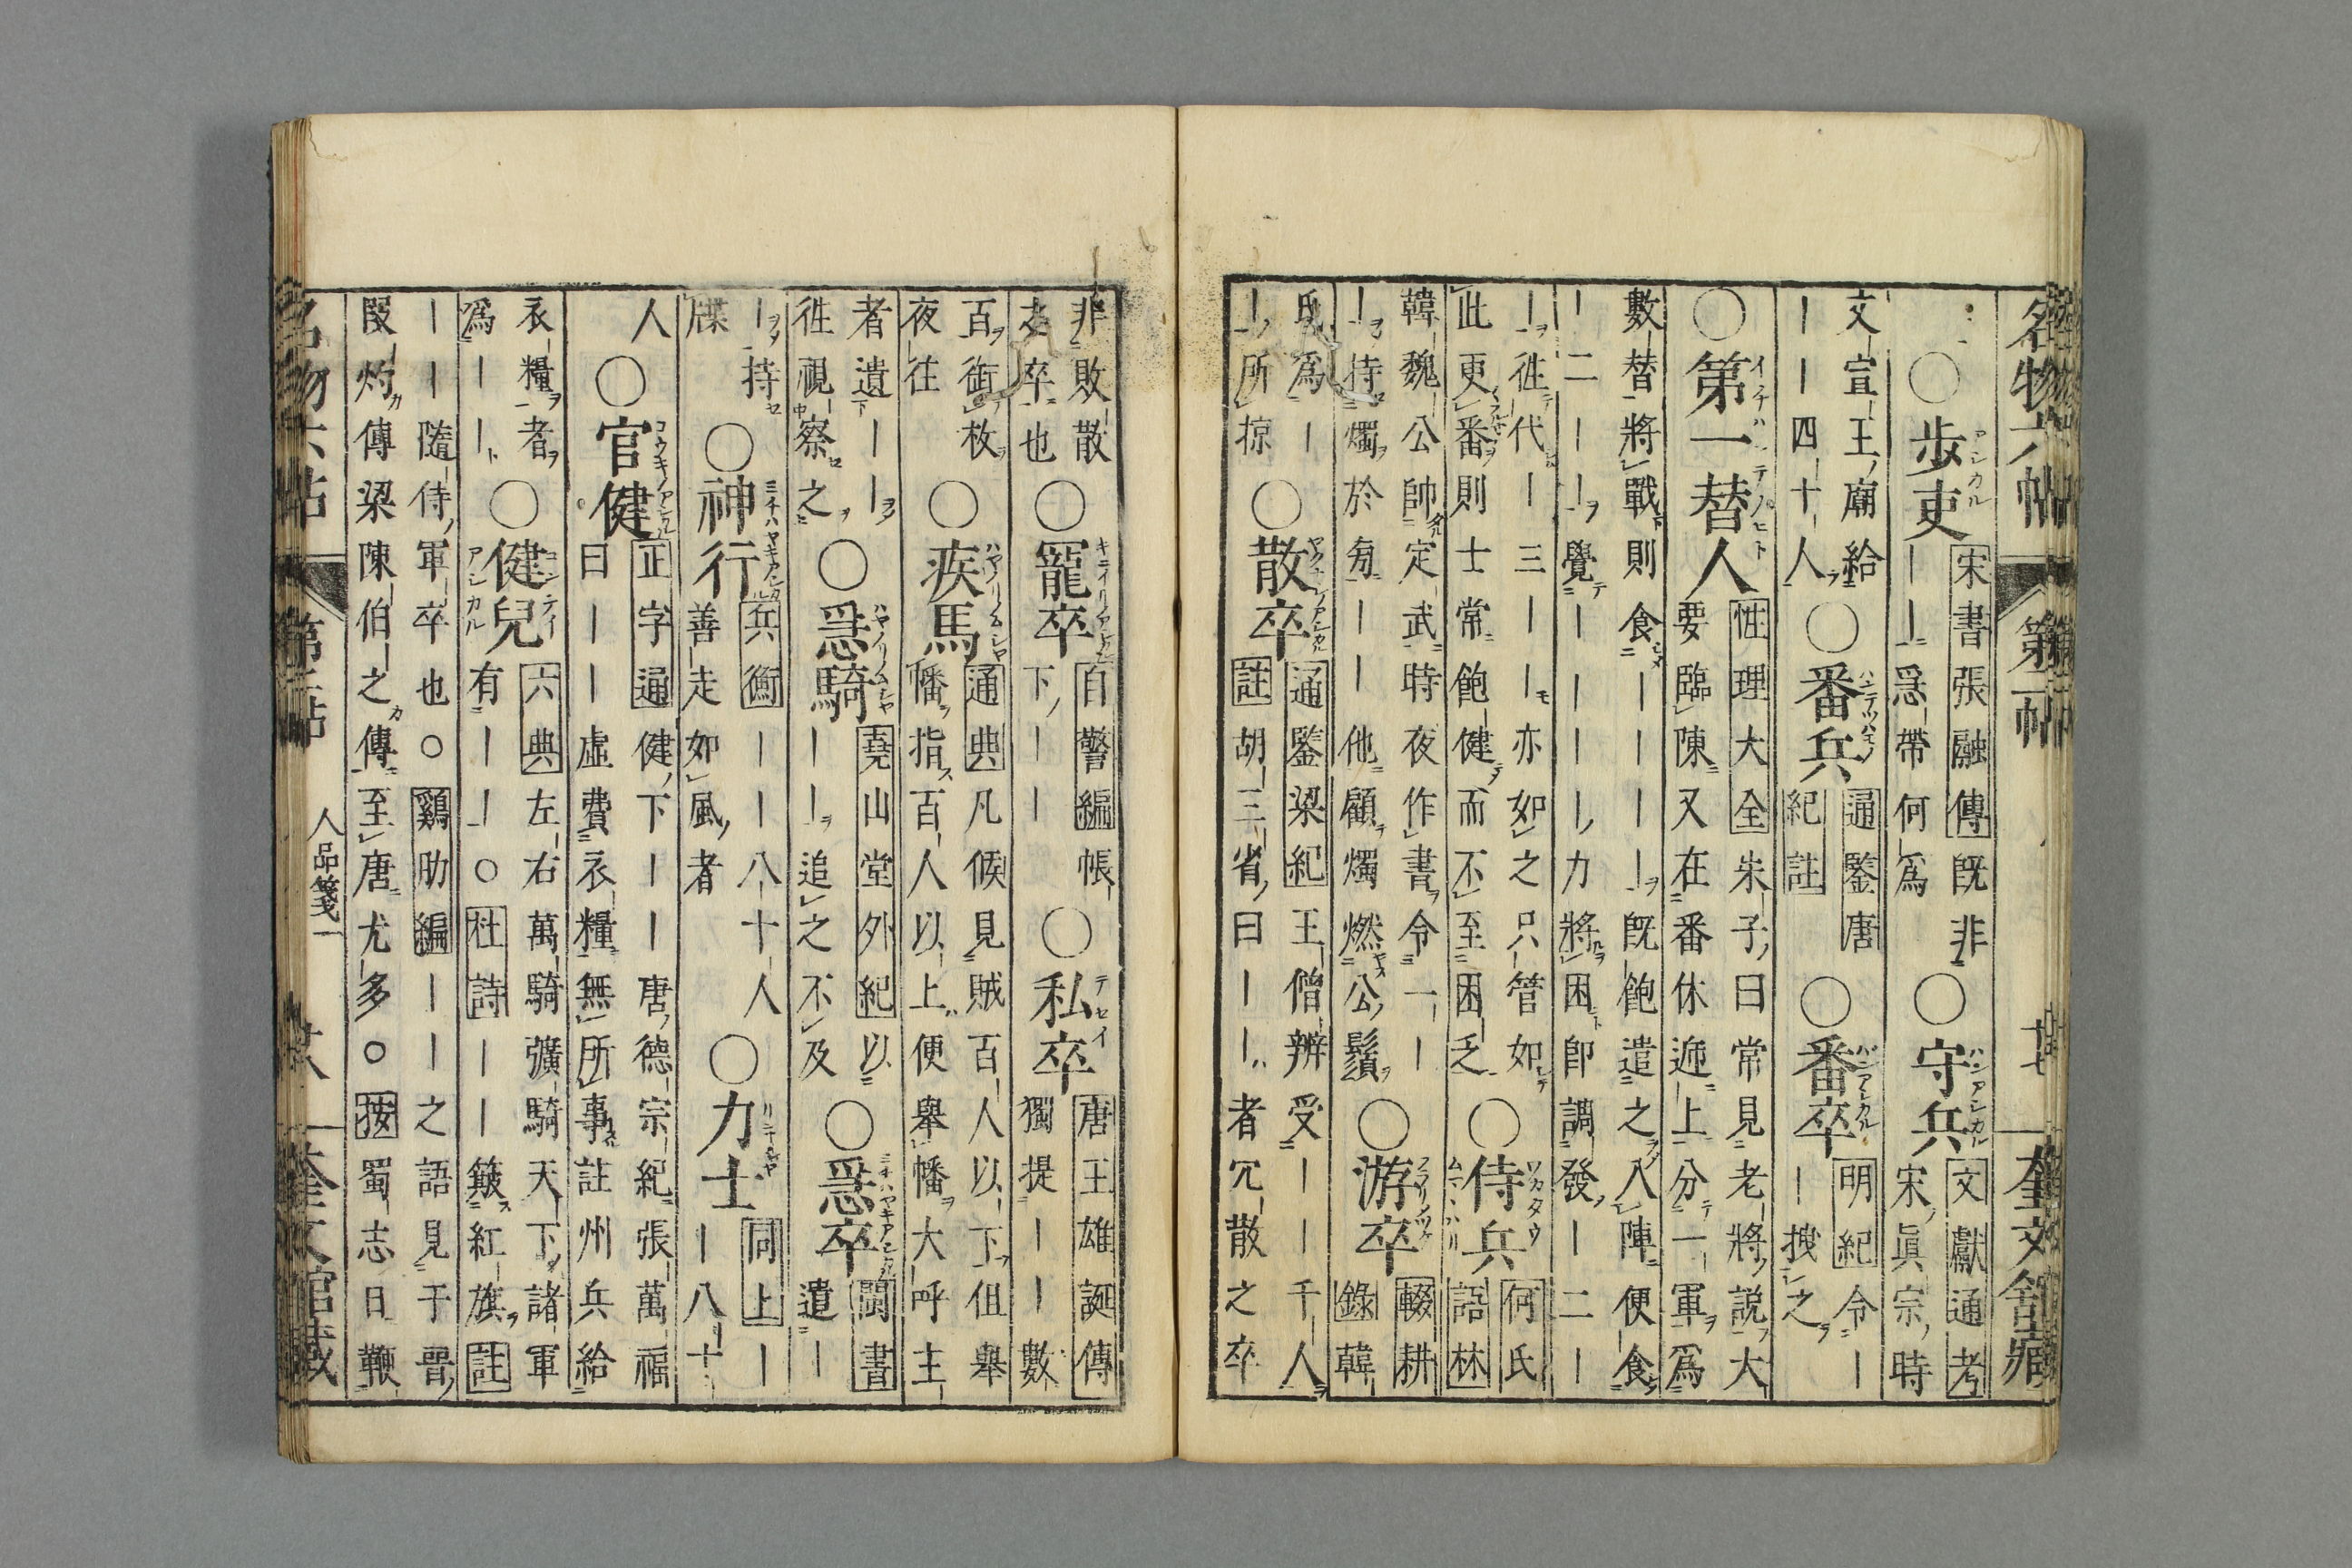 名物六帖　第二帖　十七　奎文館藏
○步吏 アシカル 宋書張融傳 既非
――急帶何爲 ○守兵 文獻通考
宋眞宗時
文宣王廟給
――四十人 ○番兵 通鑒唐
紀註 ○番卒 明紀 令―
―搜之
○第一替人 イチハンテノヒト 性理大全 朱子曰常見老將說大
要臨陳又在番休遞上分一軍爲
數替將戰則食――――既飽遣之入陣便食
―二――覺―――力將困即調發―二―
―往代―三――亦如之只管如
此更番則士常飽健而不至困乏 ○侍兵 何氏
語林
韓魏公帥定武時夜作書令一―
―持燭於旁――他顧燭燃公鬚 ○游卒 輟耕
錄 韓
氏爲― ○散卒 通鑒梁紀 王僧辨受――千人
―所掠 註 胡三省曰――者冗散之卒
非敗散
之卒也 ○寵卒 百警編 帳
下―― ○私卒 テセイ 唐王雄誕傳
獨提――數
百銜枚
夜往 ○疾馬 ハヤノリムシヤ 通典 凡候見賊百人以下但舉
幡指百人以上便舉幡大呼主
者遣――
往視察之 ○急騎 ハヤノリムシヤ 堯山堂外紀 以
――追之不及 ○急卒 閩書
遣―
―持
牒 ○神行 兵衝 ――八十人
善走如風者 ○力士 同上 ―
―八十
人 ○官健 正字通 健下――唐德宗紀張萬福
曰――虛費衣糧無所事註州兵給
衣糧者
爲―― ○健兒 アシカル 六典 左右萬騎彍騎天下諸軍
有――○杜詩 ――簸紅旗 註
――隨侍軍卒也○鷄肋編 ――之語見于晋
段灼傳梁陳伯之傳至唐尤多○按 蜀志曰鞭
名物六帖　人品箋一　奎文館藏